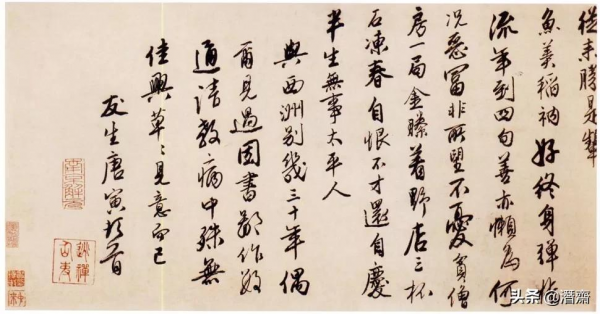 從来勝是
魚羹稻衲好終身彈指
流年到四旬善亦懶為何
况惡富非所望不憂貧僧
房一局金騰着野店三杯
石凍春自恨不才還自慶
半生無事太平人
與西洲別幾三十年偶
爾見過因書鄙作
請教病中殊無
佳興草〻見意而已
友生唐寅頓首
南京解元
头条@潛蕭